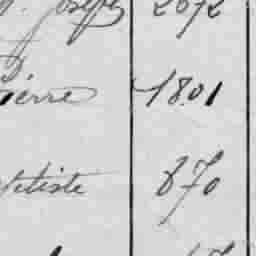 Joseph 2672
ierre 1801
ptiste 870